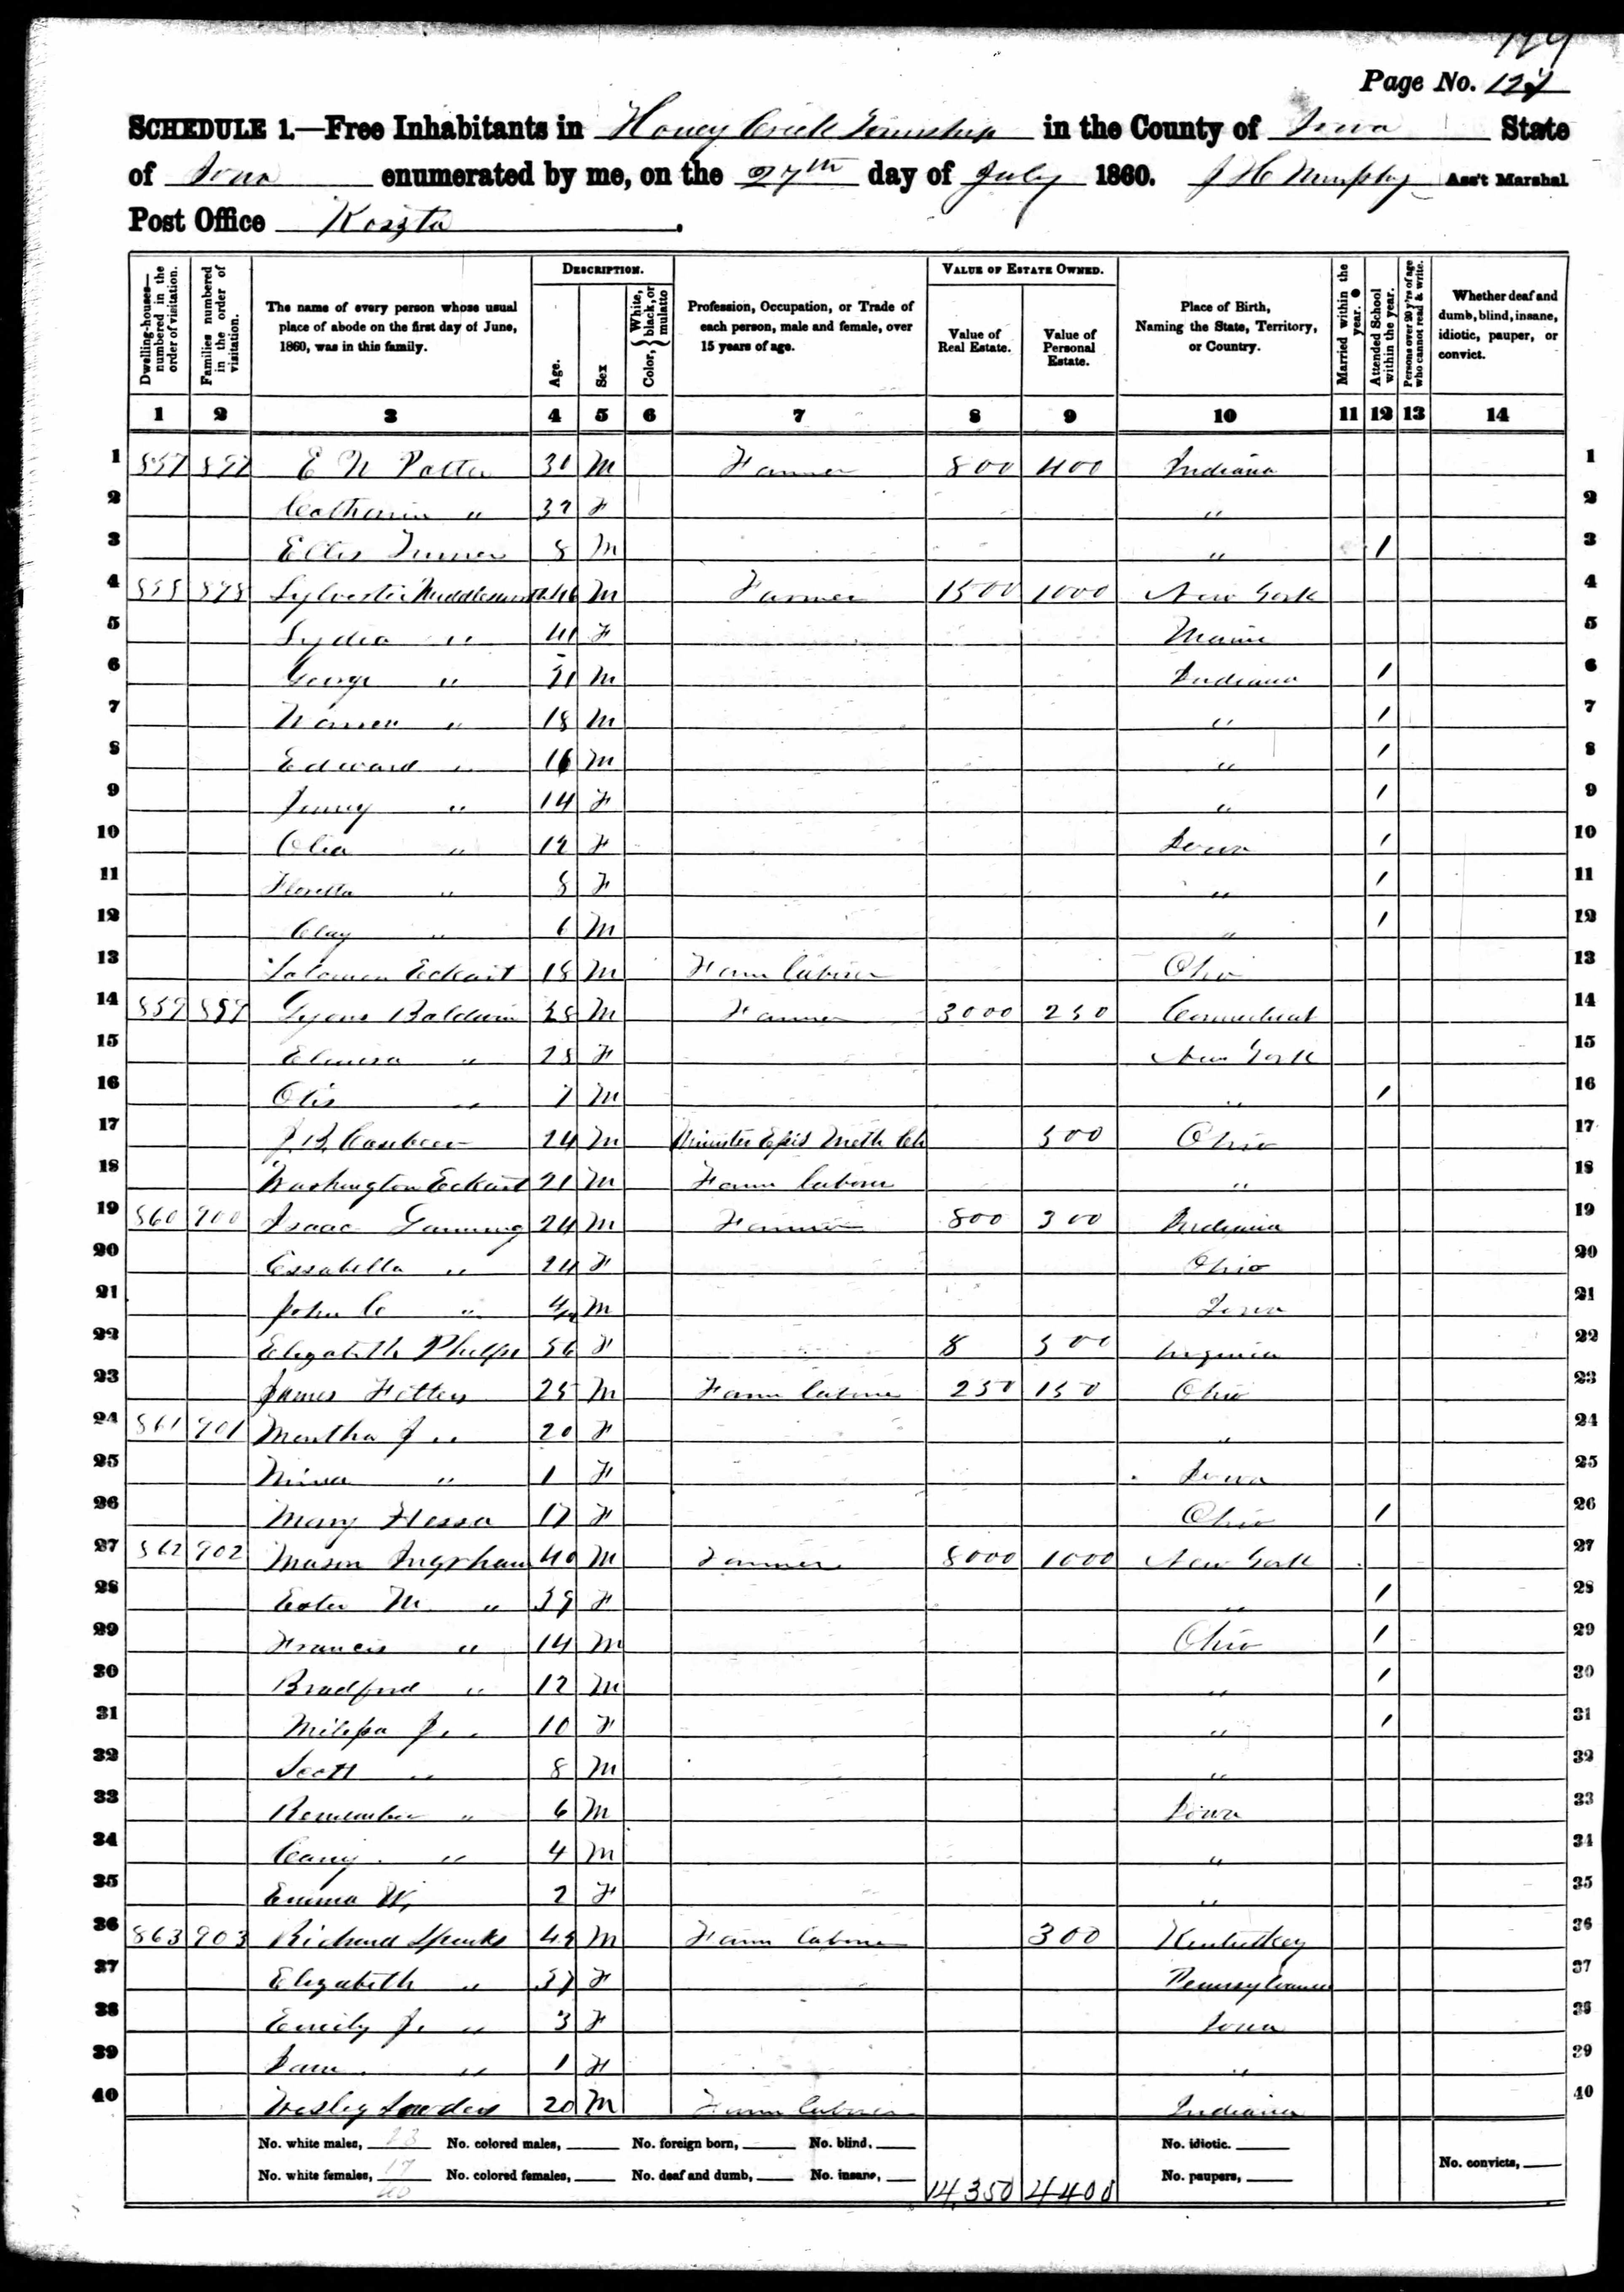 Page No. 127
SCHEDULE 1.—Free Inhabitants in Honey Creek Township in the County of Iowa State
of Iowa enumerated by me, on the 27th day of July 1860. J H Murphy Ass't Marshal
Post Office Koszta .
Dwelling-houses—numbered in the order of visitation.
Families numbered in the order of visitation.
The name of every person whose usual place of abode on the first day of June, 1860, was in this family.
DESCRIPTION.
Age.
Sex
Color, { White, black, or mulatto
Profession, Occupation, or Trade of each person, male and female, over 15 years of age.
VALUE OF ESTATE OWNED.
Value of Real Estate.
Value of Personal Estate.
Place of Birth, Naming the State, Territory, or Country.
Married within the year.
Attended School within the year.
Persons over 20 y'rs of age who cannot read & write.
Whether deaf and dumb, blind, insane, idiotic, pauper, or convict.
1 2 3 4 5 6 7 8 9 10 11 12 13 14
1 857 897 E N Potter 30 M Farmer 800 400 Indiana 1
2 Catharine " 32 F " 2
3 Ellis Turner 8 M " 1 3
4 858 898 Sylvester Middlesworth 46 M Farmer 1500 1000 New York 4
5 Lydia " 41 F Maine 5
6 George " 21 M Indiana 1 6
7 Warren " 18 M " 1 7
8 Edward " 16 M " 1 8
9 Jenny " 14 F " 1 9
10 Olia " 12 F Iowa 1 10
11 Floretta " 8 F " 1 11
12 Clay " 6 M " 1 12
13 Solomon Eckart 18 M Farm Laborer Ohio 13
14 859 899 Lyons Baldwin 38 M Farmer 3000 250 Connecticut 14
15 Elmira " 28 F New York 15
16 Otis " 7 M " 1 16
17 J. B. Casebeer 24 M Minister Epis Meth Ch 500 Ohio 17
18 Washington Eckart 21 M Farm Laborer " 18
19 860 900 Isaac Ganung 24 M Farmer 800 300 Indiana 19
20 Essabella " 24 F Ohio 20
21 John C " M Iowa 21
22 Elizabeth Phelps 56 F 8 500 Virginia 22
23 James Fetters 25 M Farm Laborer 250 150 Ohio 23
24 861 901 Mentha J " 20 F " 24
25 Mina " 1 F Iowa 25
26 Mary Hessa 17 F Ohio 1 26
27 862 902 Mason Ingrham 40 M Farmer 8000 1000 New York 27
28 Ester M. " 39 F " 1 28
29 Francis " 14 M Ohio 1 29
30 Bradford " 12 M " 1 30
31 Milissa J. " 10 F " 1 31
32 Scott " 8 M " 32
33 Remember " 6 M Iowa 33
34 " 4 M " 34
35 Emma W, 2 F " 35
36 863 903 Richard Sparks 49 M Farm Laborer 300 Kentuckey 36
37 Elizabeth " 37 F Pennsylvania 37
38 Emily J. " 3 F Iowa 38
39 Jane " 1 F " 39
40 Wesley 20 M Farm Laborer Indiana 40
No. white males, 23 No. colored males, No. foreign born, No. blind, No. idiotic.
No. white females, 17 No. colored females, No. deaf and dumb, No. insane, 14,350 4400 No. paupers, No. convicts,
40